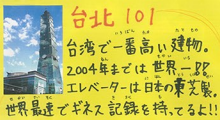 台北101
台湾で一番高い建物。
2004年までは世界一でした。
エレベーターは日本の東芝製。
世界最速でギネス記録を持ってるよ!!